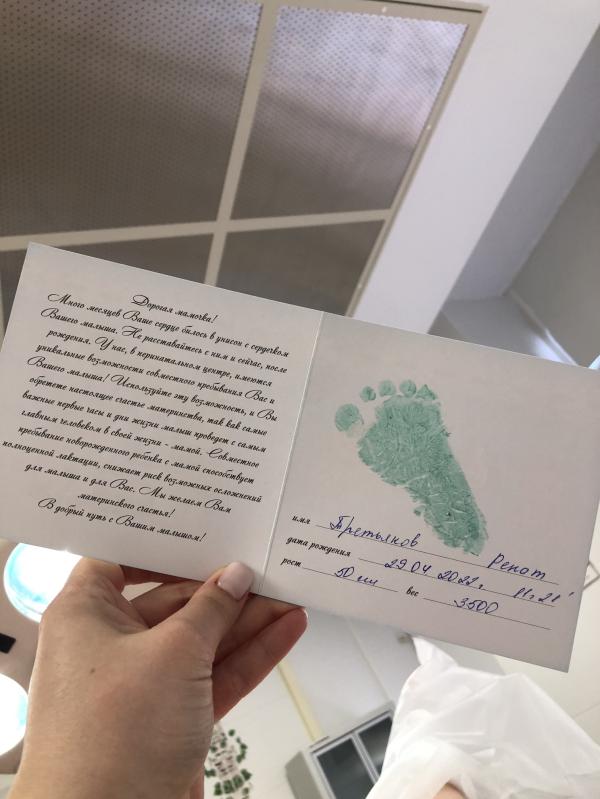 Дорогая мамочка!
Много месяцев Ваше сердце билось в унисон с сердечком
Вашего малыша. Не расставайтесь с ним и сейчас, после
рождения. У нас, в перинатальном центре, имеются
уникальные возможности совместного пребывания Вас и
Вашего малыша! Используйте эту возможность, и Вы
обретете настоящее счастье материнства, так как самые
важные первые часы и дни жизни малыш проведет с самым
главным человеком в своей жизни - мамой. Совместное
пребывание новорожденного ребенка с мамой способствует
полноценной лактации, снижает риск возможных осложнений
для малыша и для Вас. Мы желаем Вам
материнского счастья!
В добрый путь с Вашим малышом!
имя Третьяков Ренат
дата рождения 29 04 2022 г. 11ч 21'
рост 50 см вес 3500